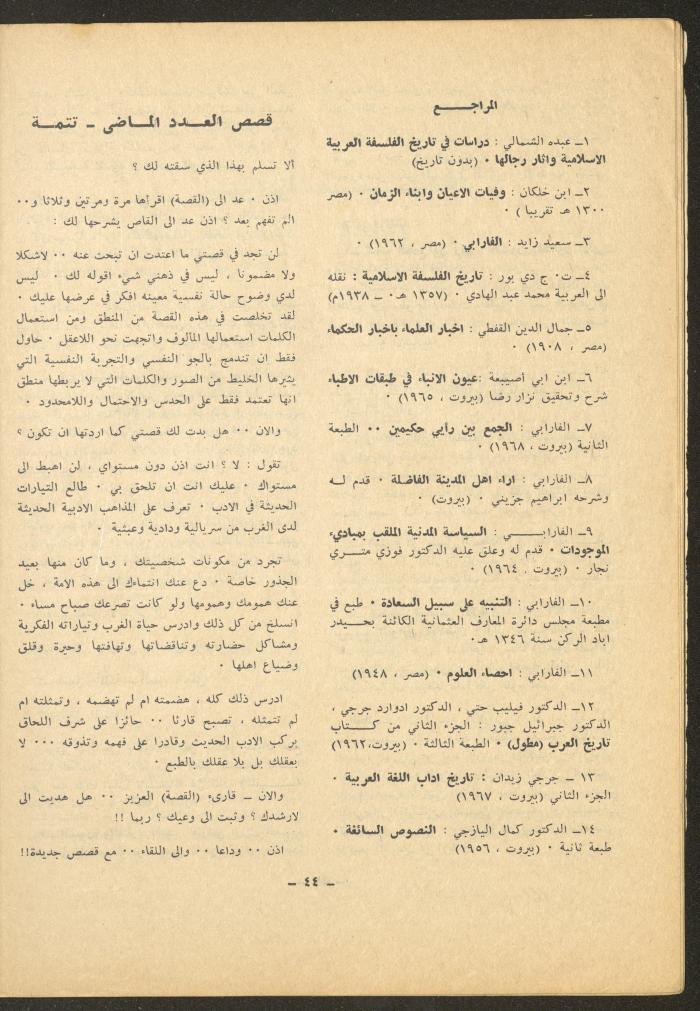 المراجـــع
١ـ عبده الشمالي : دراسات في تاريخ الفلسفة العربية
الاسلامية واثار رجالها ٠ (بدون تاريخ)
٢ـ ابن خلكان : وفيات الاعيان وابناء الزمان ٠ (مصر
١٣٠٠ هـ تقريبا ) ٠
٣ـ سعيد زايد : الفارابي ٠ (مصر ، ١٩٦٢) ٠
٤ـ ت٠ ج دي بور : تاريخ الفلسفة الاسلامية : نقله
الى العربية محمد عبد الهادي ٠ (١٣٥٧ هـ٠ ـ ١٩٣٨م)
٥ـ جمال الدين القفطي : اخبار العلماء باخبار الحكماء
(مصر ، ١٩٠٨) ٠
٦ـ ابن ابي أصيبعة :عيون الانباء في طبقات الاطباء
شرح وتحقيق نزار رضا (بيروت ، ١٩٦٥) ٠
٧ـ الفارابي : الجمع بين رأيي حكيمين ٠٠ الطبعة
الثانية (بيروت ، ١٩٦٨) ٠
٨ـ الفارابي : اراء اهل المدينة الفاضلة ٠ قدم لــه
وشرحه ابراهيم جزيني ٠ (بيروت)
٩ـ الفارابــــي : السياسة المدنية الملقب بمبادىء
الموجودات ٠ قدم له وعلق عليه الدكتور فوزي متــري
نجار ٠ (بيروت ، ١٩٦٤) ٠
١٠ـ الفارابي : التنبيه على سبيل السعادة ٠ طبع في
مطبعة مجلس دائرة المعارف العثمانية الكائنة بحــيدر
اباد الركن سنة ١٣٤٦ هـ٠
١١ـ الفارابي : احصاء العلوم ٠ (مصر ، ١٩٤٨)
١٢ـ الدكتور فيليب حتي ، الدكتور ادوارد جرجي ،
الدكتور جبرائيل جبور : الجزء الثاني من كـــتاب
تاريخ العرب (مطول) ٠ الطبعة الثالثة ٠ (بيروت،١٩٦٢)
١٣ ـ جرجي زيدان : تاريخ اداب اللغة العربية ٠
الجزء الثاني (بيروت ، ١٩٦٧)
١٤ـ الدكتور كمال اليازجي : النصوص السائغة ٠
طبعة ثانية ٠ (بيروت ، ١٩٥٦)
قصص العــدد المـاضي ـ تتمـة
ألا تسلم بهذا الذي سقته لك ؟
اذن ٠ عد الى (القصة) اقرأها مرة ومرتين وثلاثا و٠٠
الم تفهم بعد ؟ اذن عد الى القاص يشرحها لك :
لن تجد في قصتي ما اعتدت ان تبحث عنه ٠٠ لاشكلا
ولا مضمونا ، ليس في ذهني شيء اقوله لك ٠ ليس
لدي وضوح حالة نفسية معينه افكر في عرضها عليك ٠
لقد تخلصت في هذه القصة من المنطق ومن استعمال
الكلمات استعمالها المألوف واتجهت نحو اللاعقل ٠ حاول
فقط ان تندمج بالجو النفسي والتجربة النفسية التي
يثيرها الخليط من الصور والكلمات التي لا يربطها منطق
انها تعتمد فقط على الحدس والاحتمال واللامحدود ٠
والان ٠٠ هل بدت لك قصتي كما اردتها ان تكون ؟
تقول : لا ؟ انت اذن دون مستواي ، لن اهبط الى
مستواك ٠ عليك انت ان تلحق بي ٠ طالع التيارات
الحديثة في الادب ٠ تعرف على المذاهب الادبية الحديثة
لدى الغرب من سريالية ودادية وعبثية ٠
تجرد من مكونات شخصيتك ، وما كان منها بعيد
الجذور خاصة ٠ دع عنك انتماءك الى هذه الامة ، خل
عنك همومك وهمومها ولو كانت تصرعك صباح مساء ٠
انسلخ من كل ذلك وادرس حياة الغرب وتياراته الفكرية
ومشاكل حضارته وتناقضاتها وتهافتها وحيرة وقلق
وضياع اهلها ٠
ادرس ذلك كله ، هضمته ام لم تهضمه ، وتمثلته ام
لم تتمثله ، تصبح قارئا ٠٠ حائزا على شرف اللحاق
بركب الادب الحديث وقادرا على فهمه وتذوقه ٠٠٠ لا
بعقلك بل بلا عقلك بالطبع ٠
والان ـ قارىء (القصة) العزيز ٠٠ هل هديت الى
لارشدك ؟ وثبت الى وعيك ؟ ربما !!
اذن ٠٠ وداعا ٠٠ والى اللقاء ٠٠ مع قصص جديدة!!
ـ ٤٤ ـ